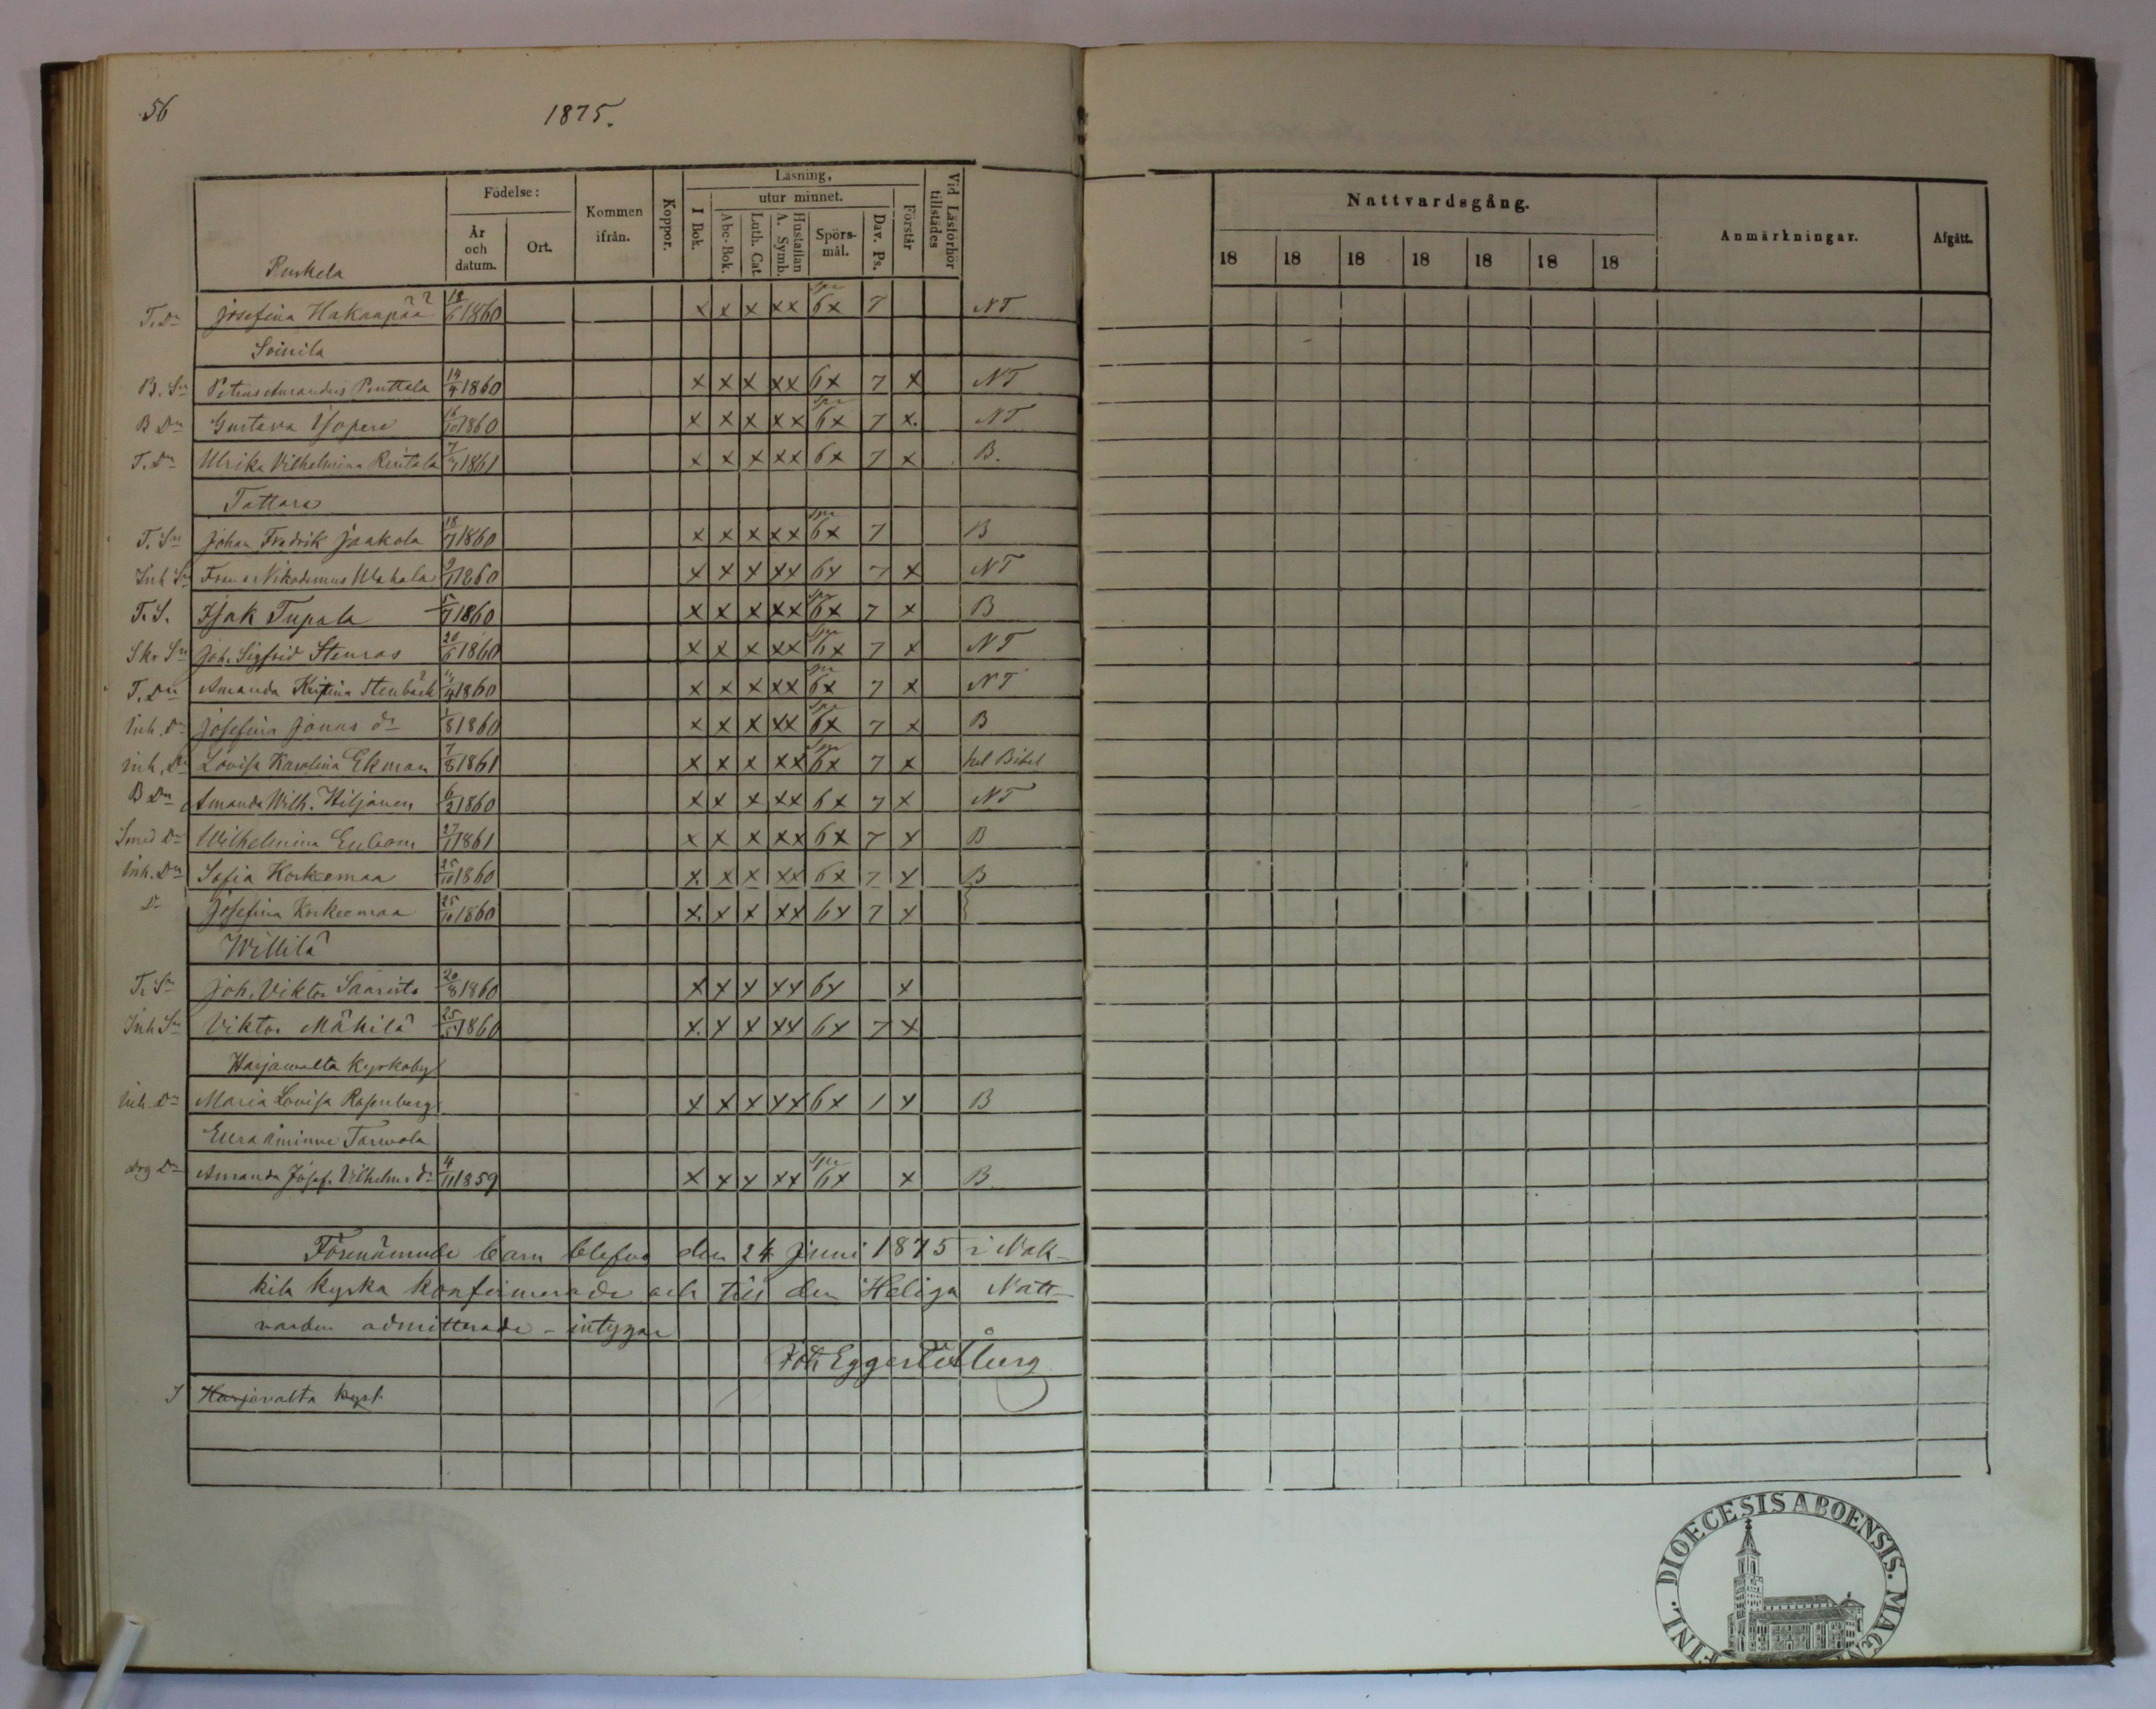 56
1875.
Födelse: Kommen ifrån. Koppor. Läsning, Vid Läsförhör tillstädes
År och datum. Ort. I Bok. utur minnet. Förstår
Abc-Bok. Luth. Cat. Hustaflan A. Symb. Spörs-mål. Dav. Ps.
Nattvardsgång. Anmärkningar. Afgått.
18 18 18 18 18 18 18
T. Dr Josefina Hakaapää 18/6 1860 x x x xx Spr 6x 7 NT
Soinila
B. Sn Petrus Amandus Penttala 14/4 1860 x x x xx 6x 7 x NT
B Dr Gustava 16/10 1860 x x x xx Spr 6x 7 x. NT
T. Dr Ulrika Vilhelmina Rintala 1861 x x x xx 6x 7 x B.
Tattara
T. Sn Johan Fredrik Jaakola 18/7 1860 x x x xx Spr 6x 7 B
Inh Sn Frans Nikodemus 1860 x x x xx 6x 7 x NT
T. S. Isak Tupala 5/7 1860 x x x xx Spr 6x 7 x B
Skr Sn Joh. Sigfrid Stenros 20/6 1860 x x x xx Spr 6x 7 x NT
T. Dr Amanda Kristina Stenbäck 1860 x x x xx Spr 6x 7 x NT
Inh. Dr Josefina Jonas dr 1/8 1860 x x x xx Spr 6x 7 x B
Inh. Dr Lovisa Karolina Ekman 7/8 1861 x x x xx Spr 6x 7 x hel Bibel
B Dr Amanda Wilh. Hiljanen 6/2 1860 x x x xx 6x 7 x NT
Smed Dr Wilhelmina 27/1 1861 x x x xx 6x 7 x B
Inh. Dr Sofia Korkeemaa 25/10 1860 x. x x xx 6x 7 x B
Dr Josefina Korkeemaa 25/10 1860 x. x x xx 6x 7 x
Willilä
T. Sn Joh. Viktor Saaristo 20/8 1860 x x x xx 6x x
Inh Sn Viktor Mähilä 25/5 1860 x. x x xx 6x 7 x
Harjawalta kyrkoby
Inh. Dr Maria Lovisa Rosenberg x x x xx 6x 1 x B
Euraåminne Tarwola
Drg Dr Amanda Josef. Vilhelms dr 4/11 1859 x x x xx Spr 6x x B
Förenämnde barn blefvo den 24 Juni 1875 i Nak-
kila kyrka konfirmerade och till den Heliga Natt-
varden admitterade - intygar
Joh Eggert
Harjavalta kyrk
FINL. DIOECESIS ABOENSIS. MAGN